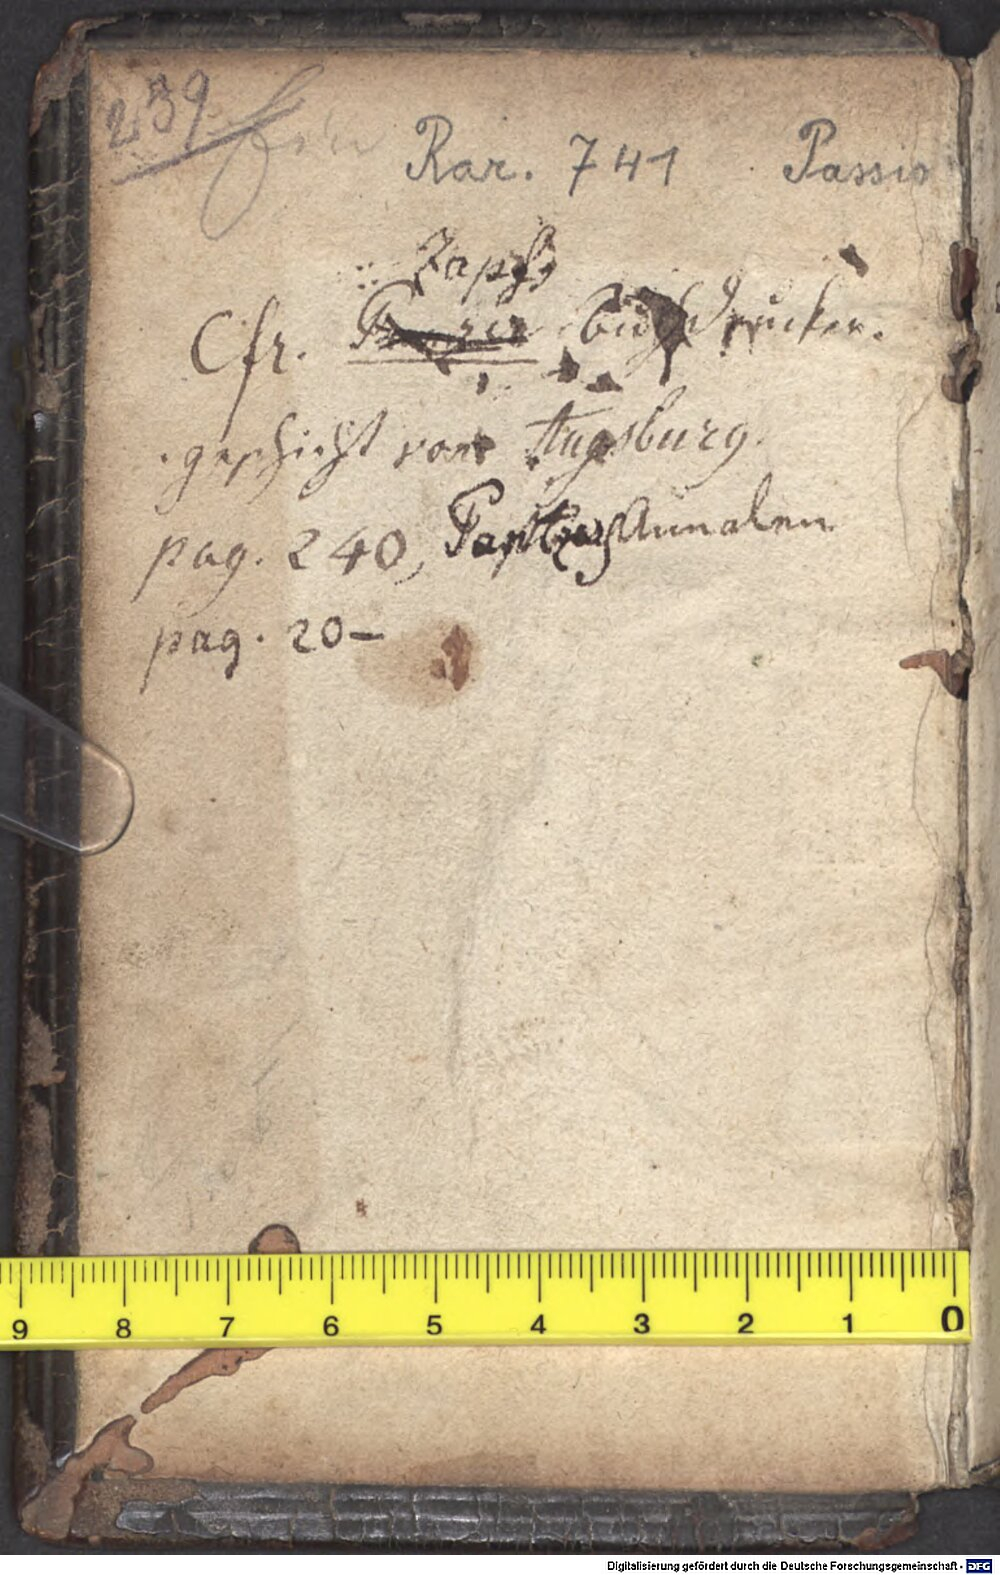 239.
Rar. 741 Passio
Zapfs
Cfr. Buchdrucker.
geschicht von Augsburg
pag. 240, Annalen
pag. 20-
9 8 7 6 5 4 3 2 1 0
Digitalisierung gefördert durch die Deutsche Forschungsgemeinschaft - DFG